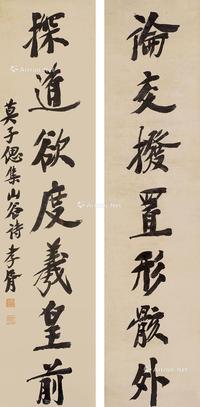 論交撥置形骸外
探道欲度羲皇前
莫子偲集山谷詩 孝胥